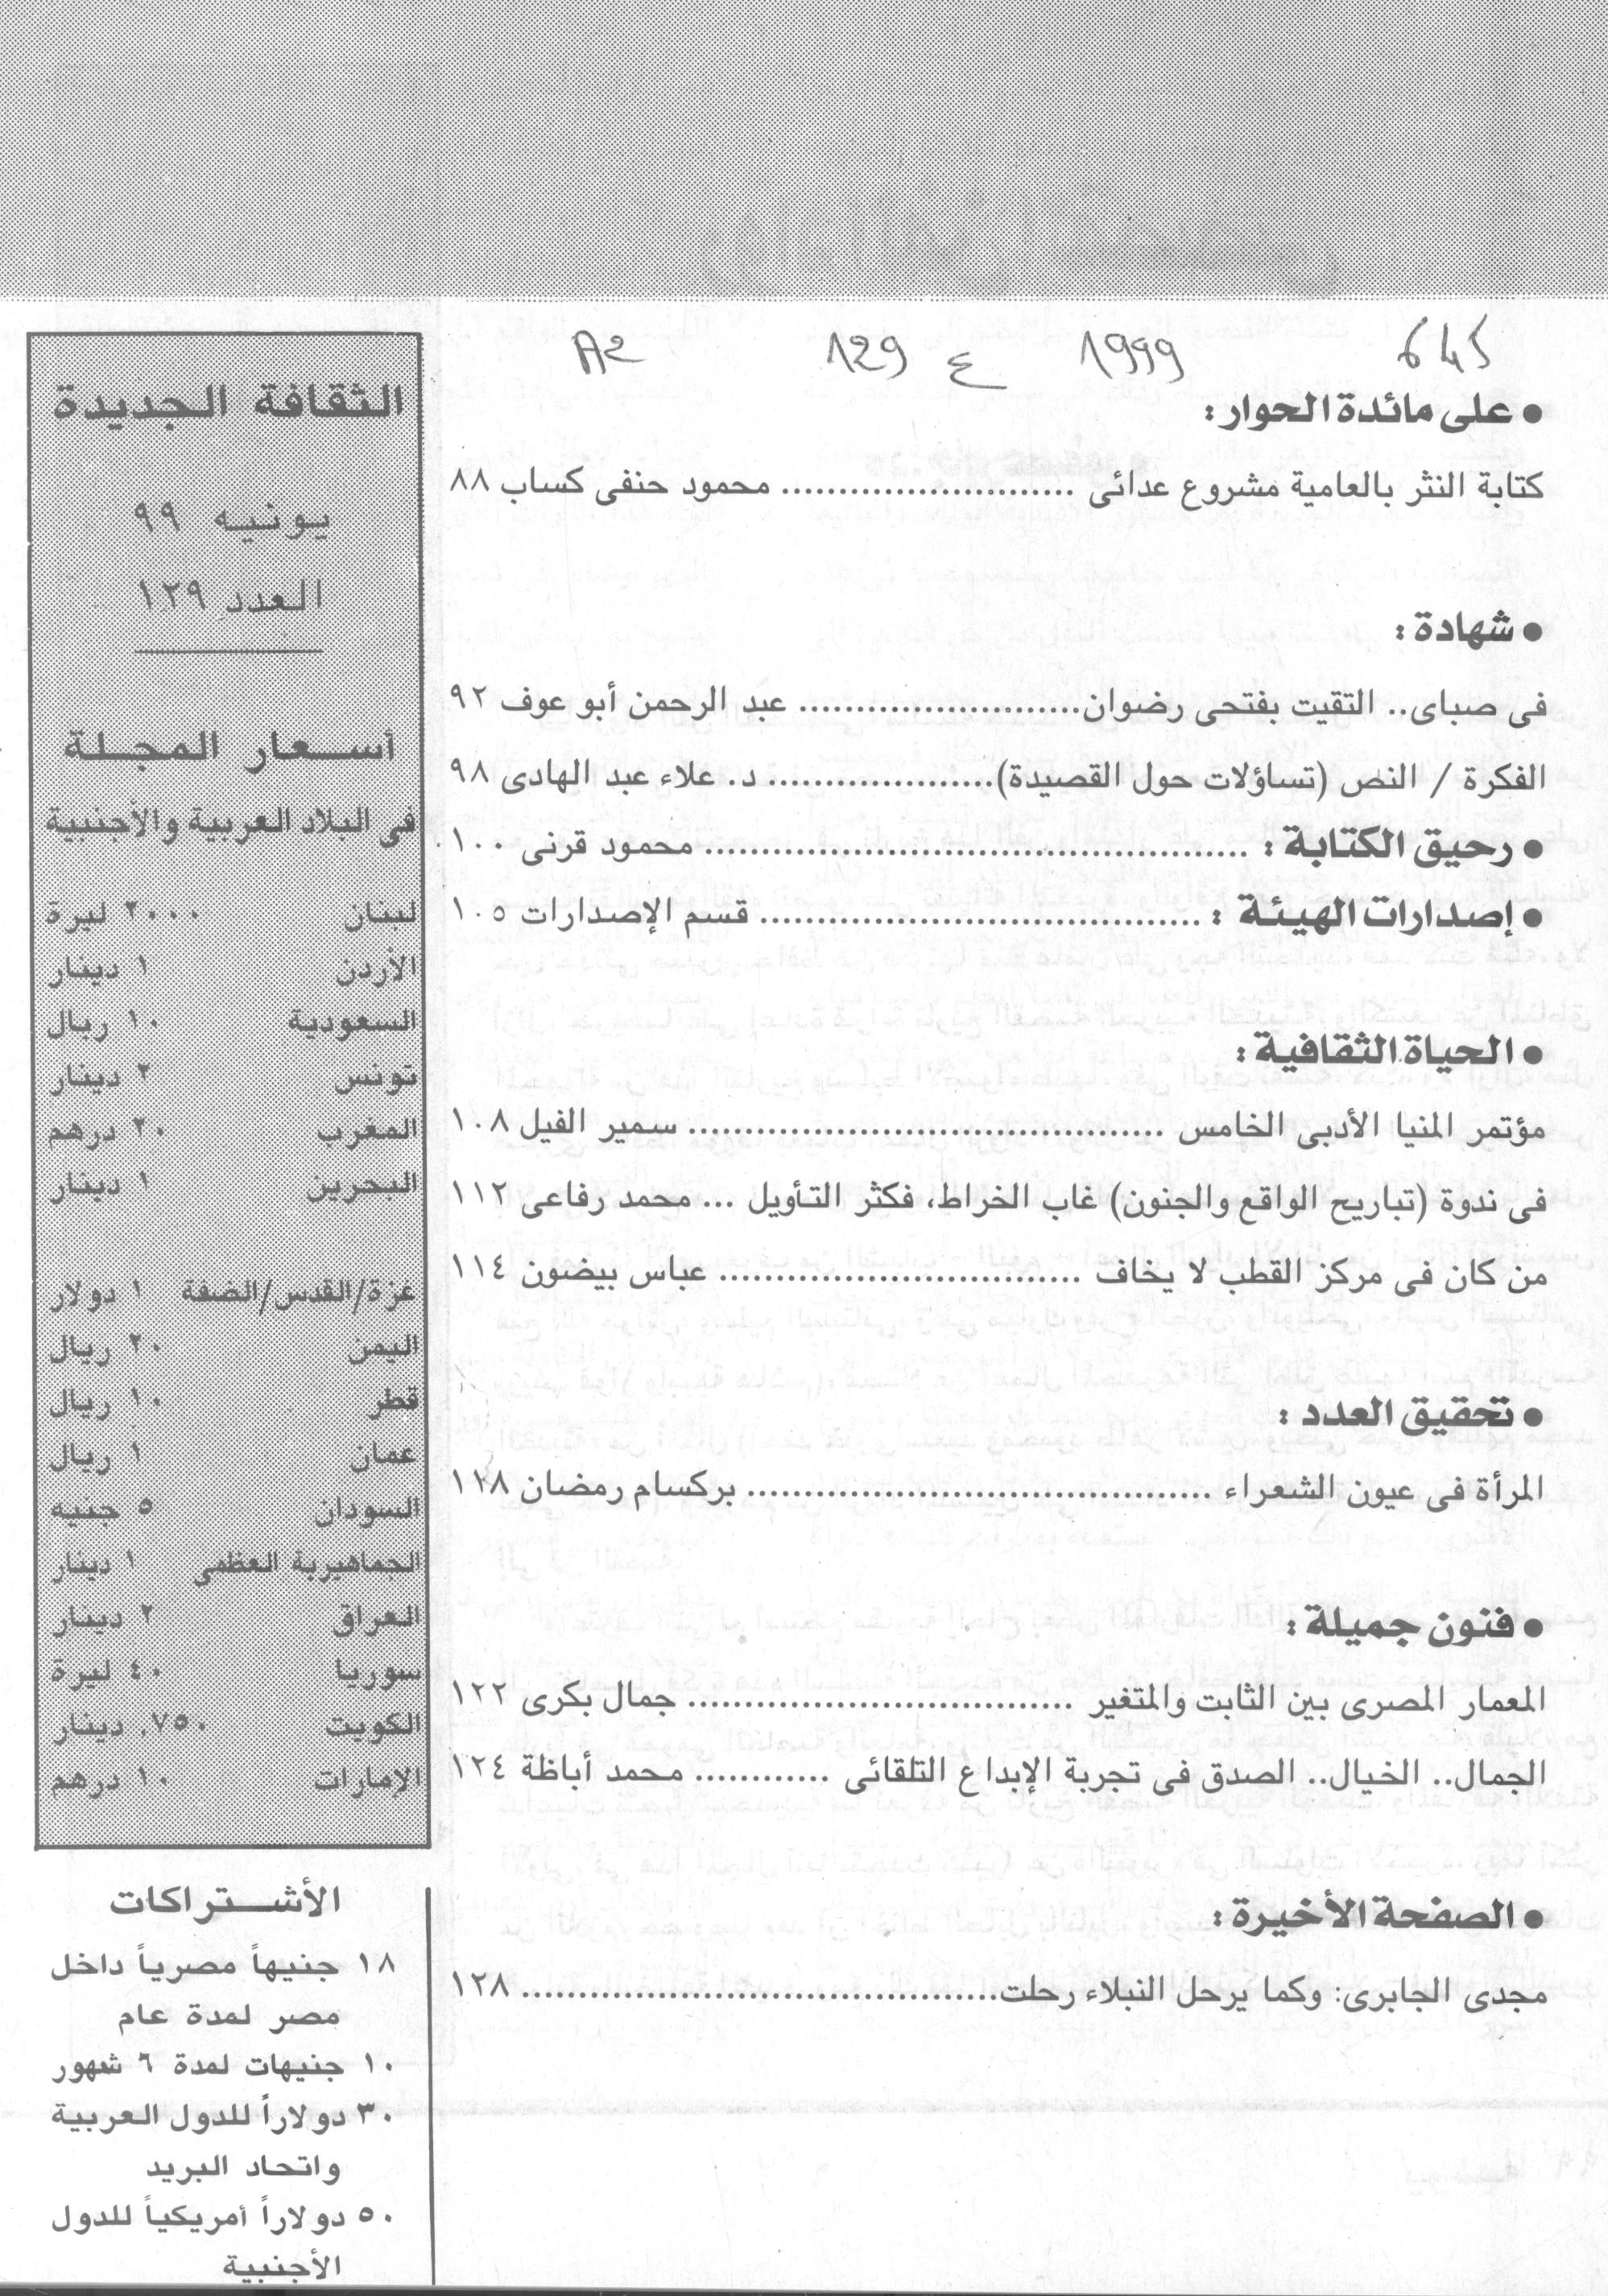 645 1999 ع 129 A2
● على مائدة الحوار :
كتابة النثر بالعامية مشروع عدائى .......................... محمود حنفى كساب ٨٨
● شهادة :
فى صباى.. التقيت بفتحى رضوان......................... عبد الرحمن أبو عوف ٩٢
الفكرة / النص (تساؤلات حول القصيدة).................... د. علاء عبد الهادى ٩٨
● رحيق الكتابة : ................................................ محمود قرنى ١٠٠
● إصدارات الهيئة : ....................................... قسم الإصدارات ١٠٥
● الحياة الثقافية :
مؤتمر المنيا الأدبى الخامس .......................................... سمير الفيل ١٠٨
فى ندوة (تباريح الواقع والجنون) غاب الخراط، فكثر التأويل ... محمد رفاعى ١١٢
من كان فى مركز القطب لا يخاف ................................ عباس بيضون ١١٤
● تحقيق العدد :
المرأة فى عيون الشعراء ......................................... بركسام رمضان ١١٨
● فنون جميلة :
المعمار المصرى بين الثابت والمتغير .................................. جمال بكرى ١٢٢
الجمال.. الخيال.. الصدق فى تجربة الإبداع التلقائى ............ محمد أباظة ١٢٤
● الصفحة الأخيرة :
مجدى الجابرى: وكما يرحل النبلاء رحلت.......................................... ١٢٨
الثقافة الجديدة
يونيه ٩٩
العدد ١٢٩
أسعار المجلة
فى البلاد العربية والأجنبية
لبنان ٢٠٠٠ ليرة
الأردن ١ دينار
السعودية ١٠ ريال
تونس ٢ دينار
المغرب ٢٠ درهم
البحرين ١ دينار
غزة/القدس/الضفة ١ دولار
اليمن ٢٠ ريال
قطر ١٠ ريال
عمان ١ ريال
السودان ٥ جنيه
الجماهيرية العظمى ١ دينار
العراق ٢ دينار
سوريا ٤٠ ليرة
الكويت ٧٥٠, دينار
الإمارات ١٠ درهم
الأشتراكات
١٨ جنيهاً مصرياً داخل
مصر لمدة عام
١٠ جنيهات لمدة ٦ شهور
٣٠ دولاراً للدول العربية
واتحاد البريد
٥٠ دولاراً أمريكياً للدول
الأجنبية